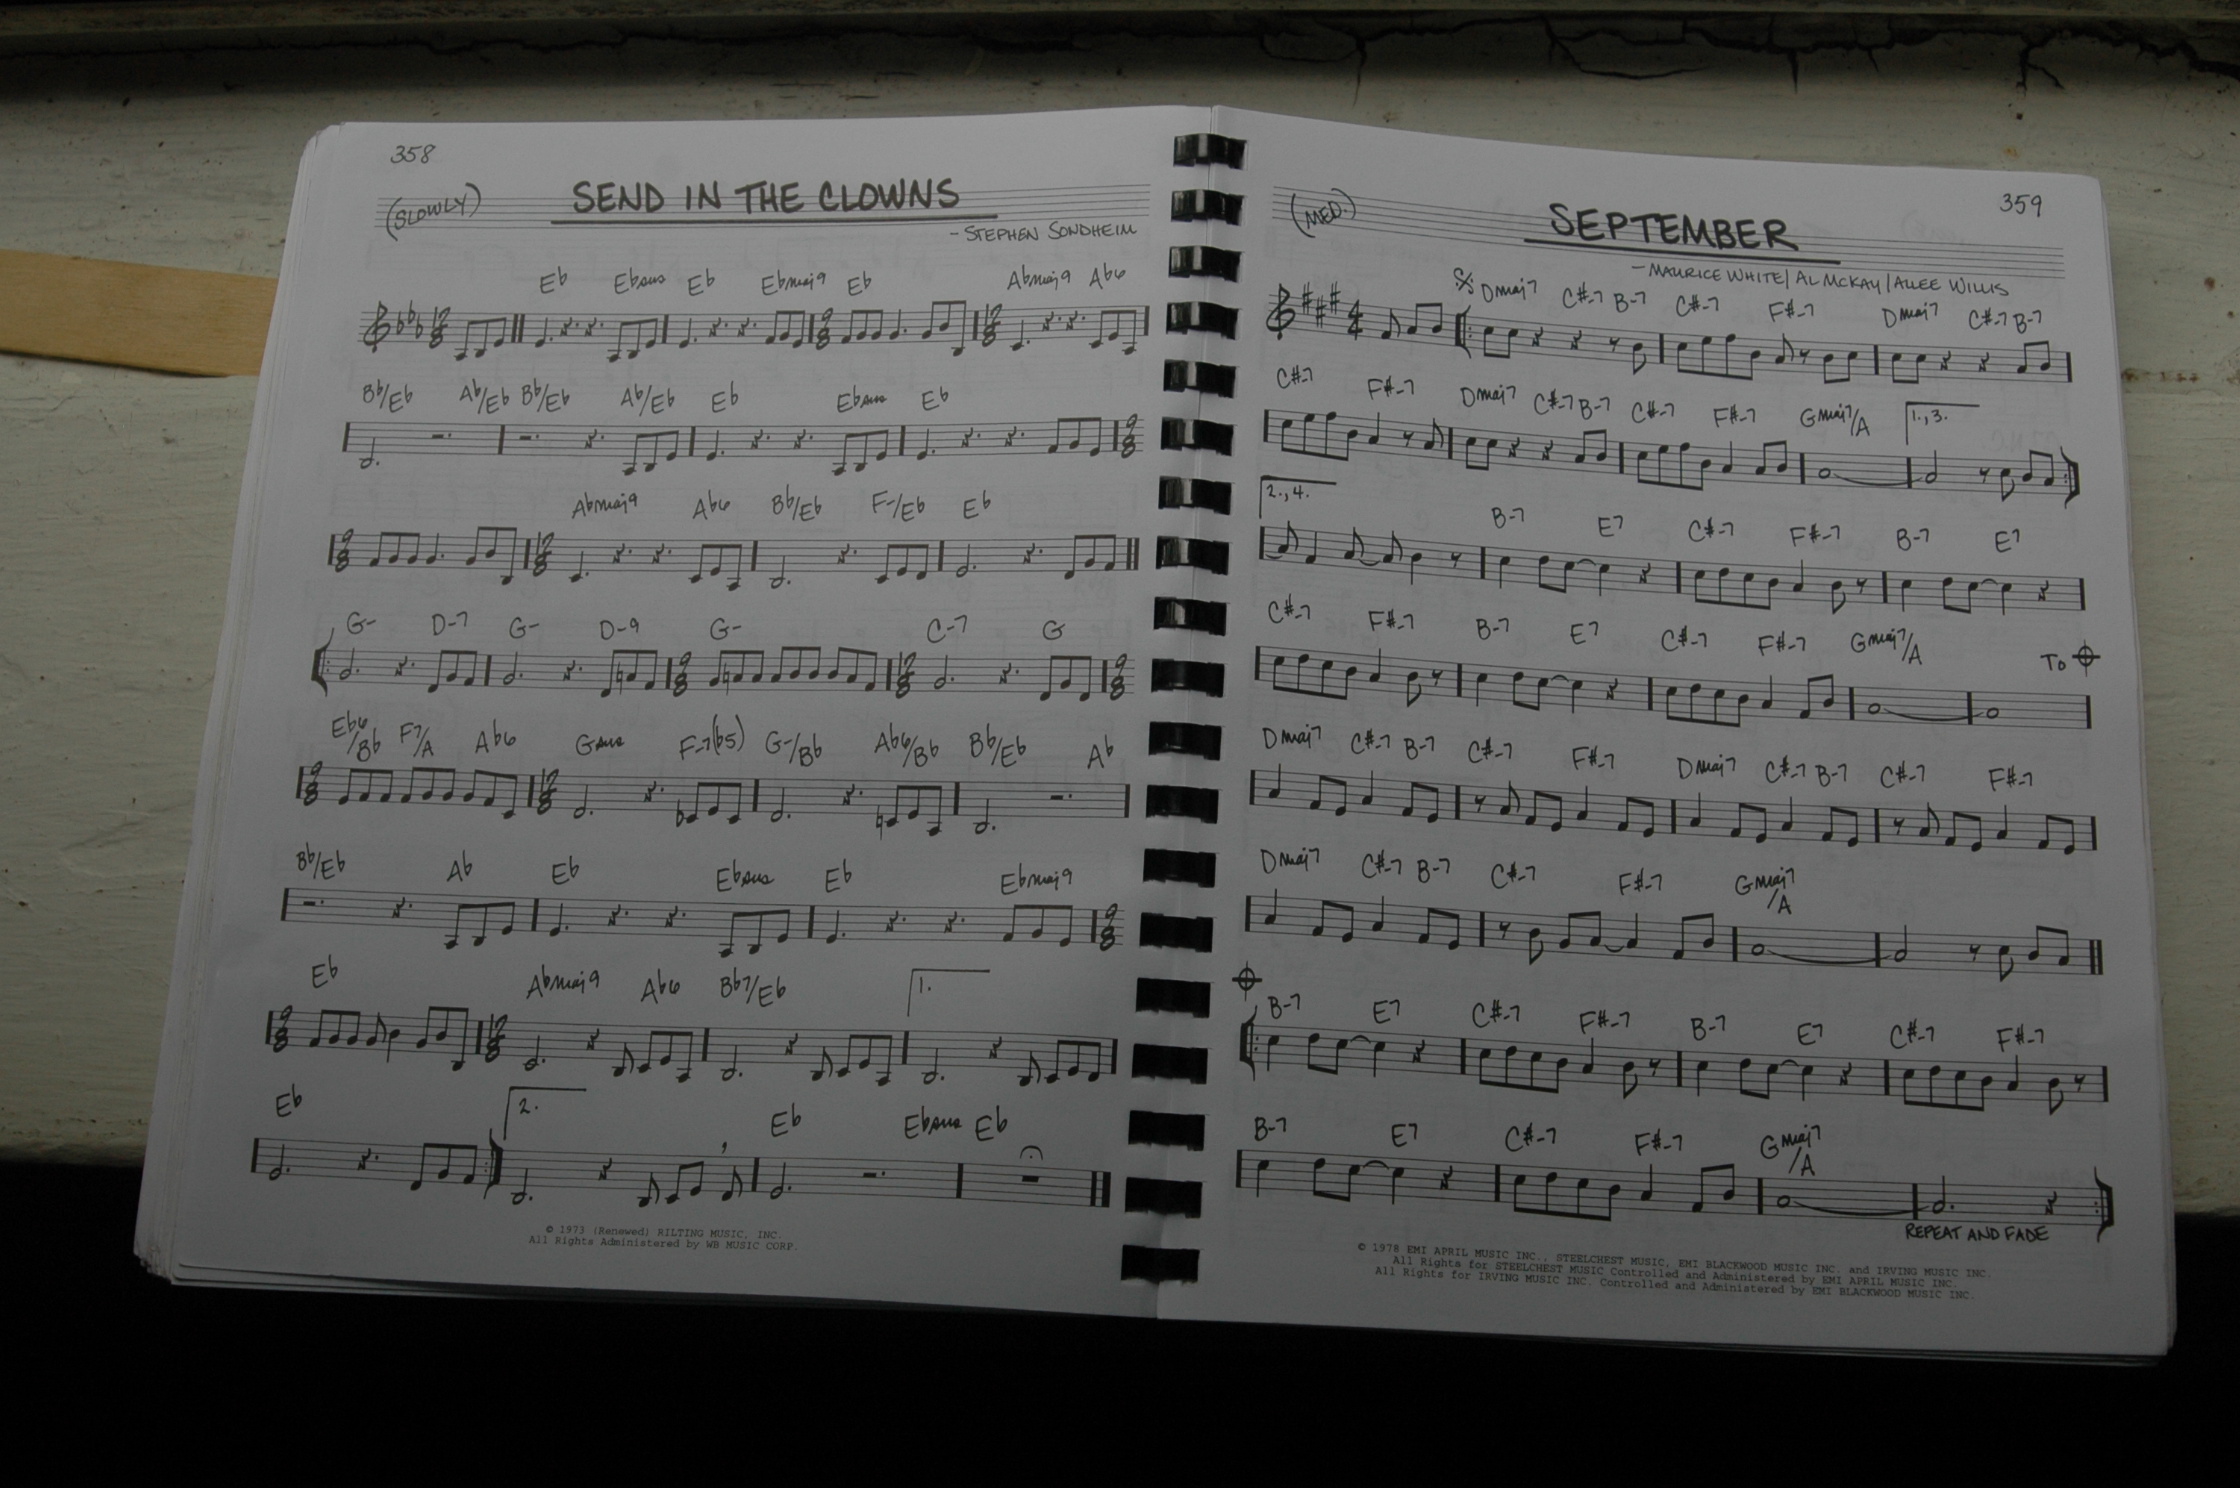 358
SEND IN THE CLOWNS
(SLOWLY)
- STEPHEN SONDHEIM
Eb Ebsus Eb Ebmaj9 Eb Abmaj9 Ab6
Bb/Eb Ab/Eb Bb/Eb Ab/Eb Eb Ebsus Eb
Abmaj9 Ab6 Bb/Eb F-/Eb Eb
G- D-7 G- D-9 G- C-7 G
Eb6/Bb F7/A Ab6 Gsus F-7(b5) G-/Bb Ab6/Bb Bb/Eb Ab
Bb/Eb Ab Eb Ebsus Eb Ebmaj9
Eb Abmaj9 Ab6 Bb7/Eb 1.
Eb 2. Eb Ebsus Eb
© 1973 (Renewed) RILTING MUSIC, INC.
All Rights Administered by WB MUSIC CORP.
359
SEPTEMBER
(MED.)
- MAURICE WHITE/AL MCKAY/ALLEE WILLIS
Dmaj7 C#-7 B-7 C#-7 F#-7 Dmaj7 C#-7 B-7
C#-7 F#-7 Dmaj7 C#-7 B-7 C#-7 F#-7 Gmaj7/A 1.,3.
2.,4. B-7 E7 C#-7 F#-7 B-7 E7
C#-7 F#-7 B-7 E7 C#-7 F#-7 Gmaj7/A TO
Dmaj7 C#-7 B-7 C#-7 F#-7 Dmaj7 C#-7 B-7 C#-7 F#-7
Dmaj7 C#-7 B-7 C#-7 F#-7 Gmaj7/A
B-7 E7 C#-7 F#-7 B-7 E7 C#-7 F#-7
B-7 E7 C#-7 F#-7 Gmaj7/A
REPEAT AND FADE
© 1978 EMI APRIL MUSIC INC., STEELCHEST MUSIC, EMI BLACKWOOD MUSIC INC. and IRVING MUSIC INC.
All Rights for STEELCHEST MUSIC Controlled and Administered by EMI APRIL MUSIC INC.
All Rights for IRVING MUSIC INC. Controlled and Administered by EMI BLACKWOOD MUSIC INC.